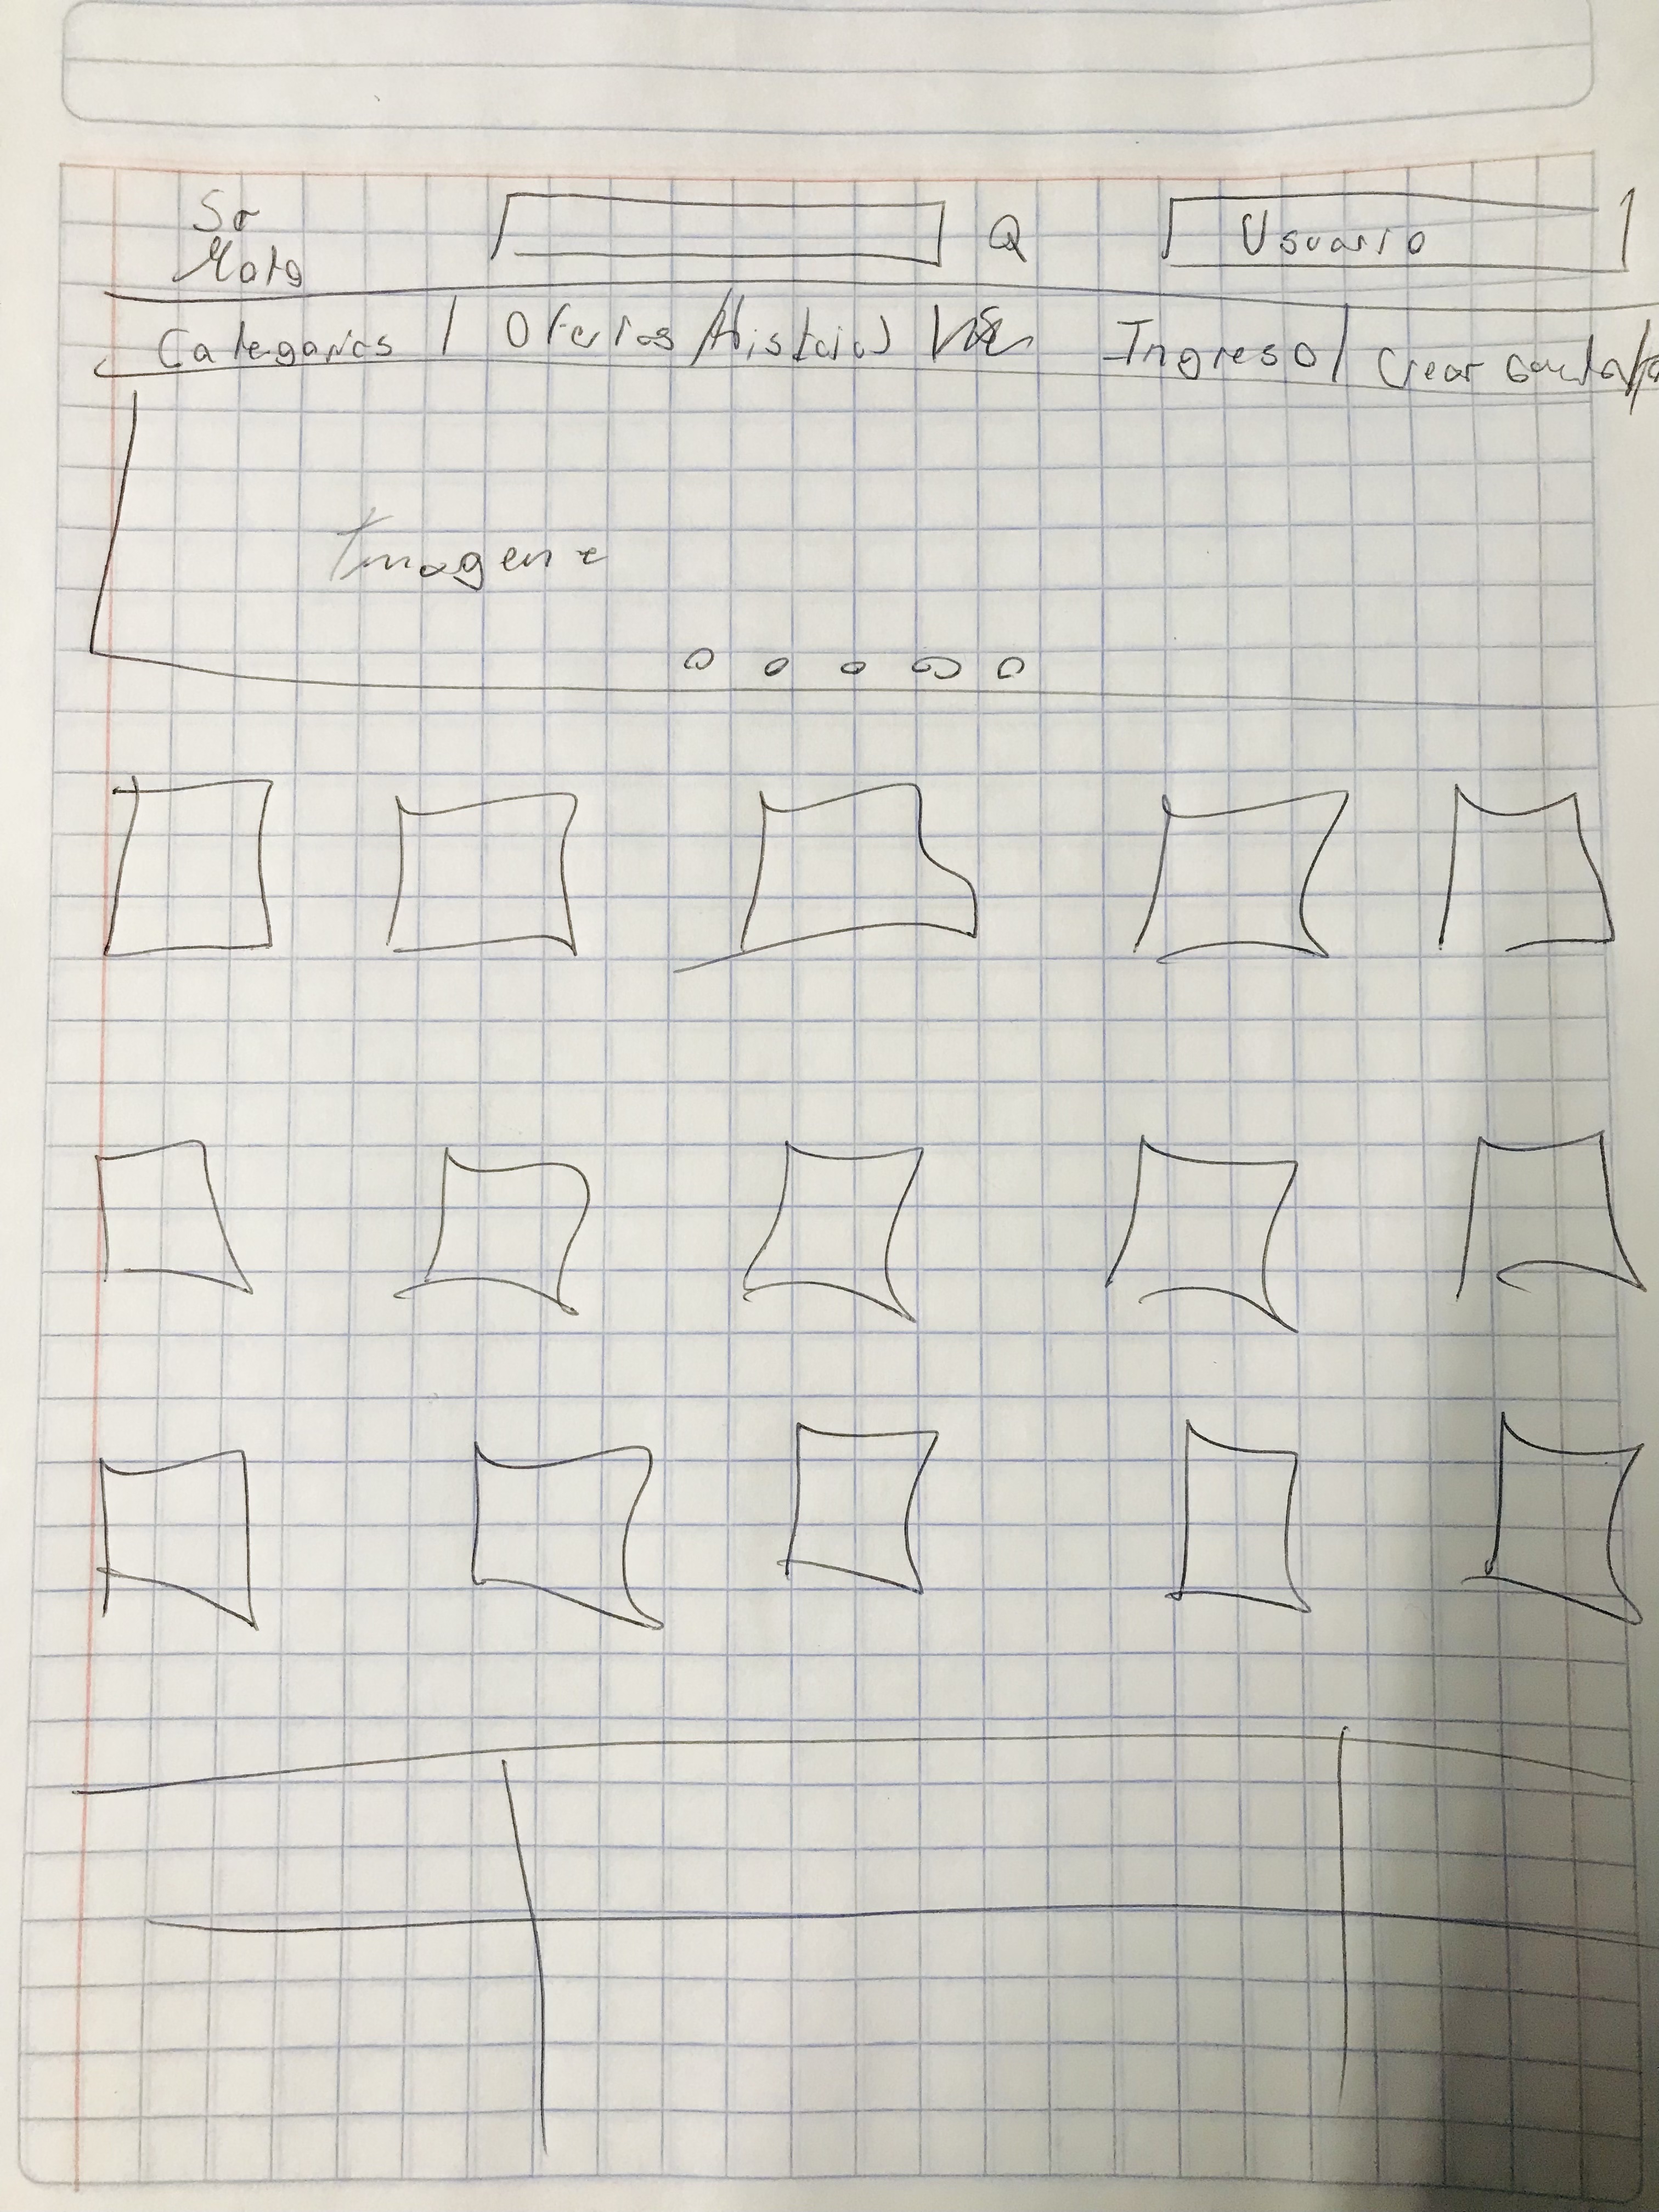 Sr
Mota
Q Usuario
Categorias / Ofertas / Historial / Ingreso / Crear cuenta /
Imagene